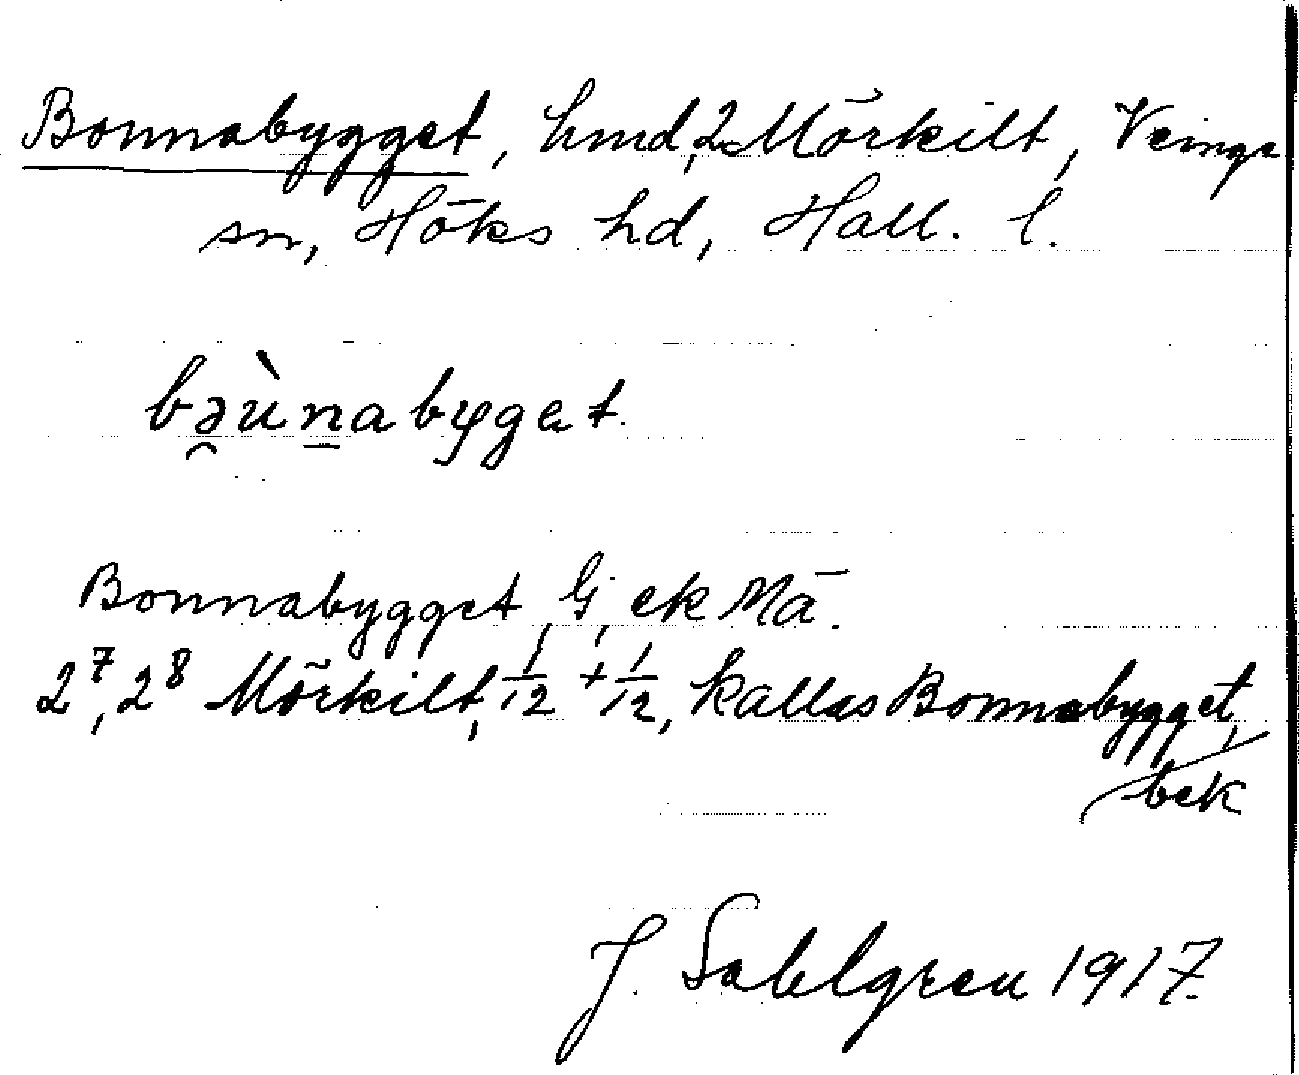 Bonnabygget, hmd, 2 Mörkilt, Veinge
sn, Höks hd, Hall. l.
bə̯ùn̲abyget.
Bonnabygget, G, ek Mā.
2⁷, 2⁸ Mörkilt, 1/12 + 1/12, kallas Bonnabygget,
bek
J. Sahlgren 1917.